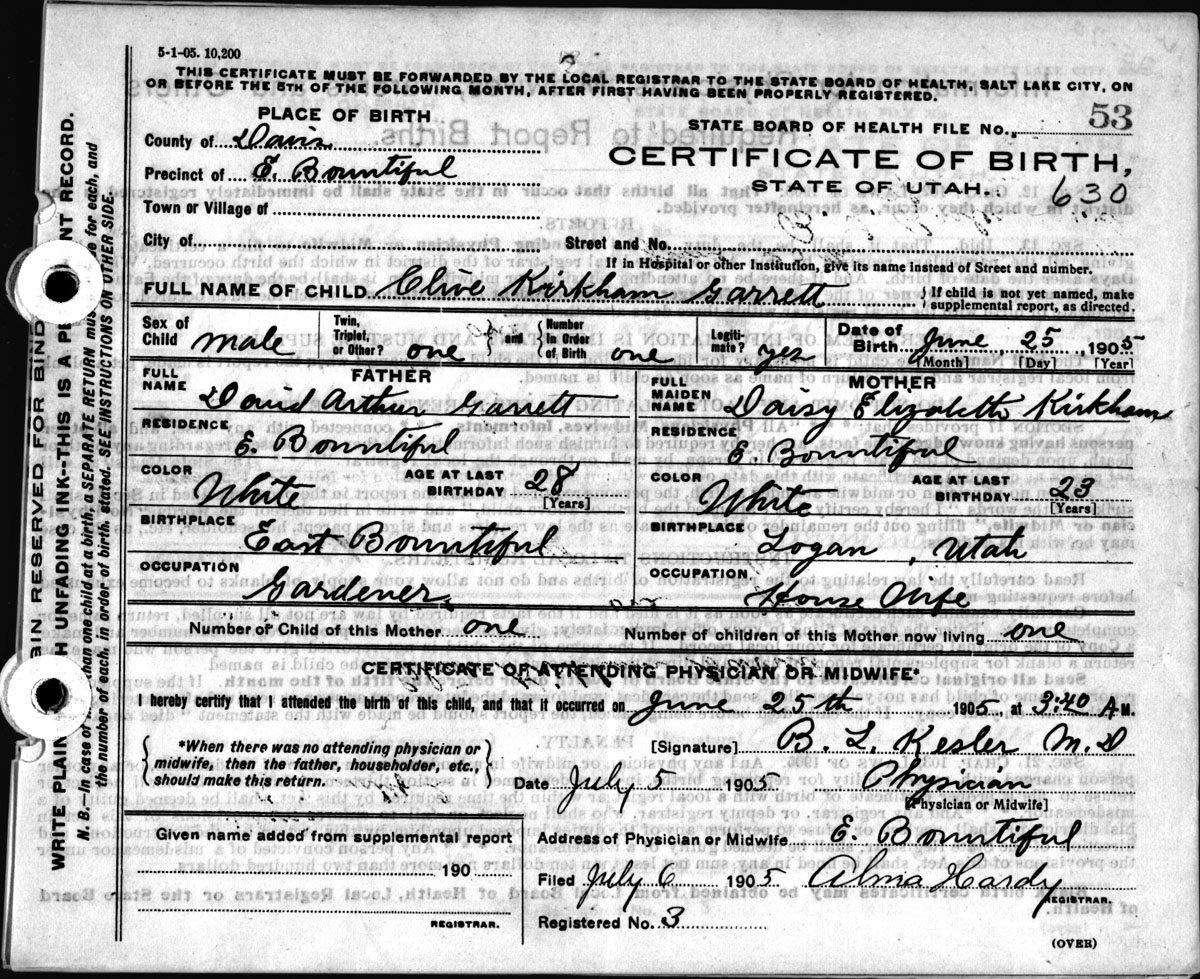 5-1-05. 10,200
THIS CERTIFICATE MUST BE FORWARDED BY THE LOCAL REGISTRAR TO THE STATE BOARD OF HEALTH, SALT LAKE CITY, ON
OR BEFORE THE 5TH OF THE FOLLOWING MONTH, AFTER FIRST HAVING BEEN PROPERLY REGISTERED.
PLACE OF BIRTH
STATE BOARD OF HEALTH FILE NO. 53
County of Davis
CERTIFICATE OF BIRTH,
Precinct of E. Bountiful
STATE OF UTAH.
630
Town or Village of
City of
Street and No.
If in Hospital or other Institution, give its name instead of Street and number.
FULL NAME OF CHILD Clive Kirkham Garrett
{If child is not yet named, make
supplemental report, as directed.
Sex of Child male
Twin, Triplet, or Other? one
and
Number in Order of Birth one
Legitimate? yes
Date of Birth June, 25, 1905
[Month] [Day] [Year]
FATHER
FULL NAME David Arthur Garrett
MOTHER
FULL MAIDEN NAME Daisy Elizabeth Kirkham
RESIDENCE E. Bountiful
RESIDENCE E. Bountiful
COLOR White
AGE AT LAST BIRTHDAY 28
[Years]
COLOR White
AGE AT LAST BIRTHDAY 23
[Years]
BIRTHPLACE East Bountiful
BIRTHPLACE Logan, Utah
OCCUPATION Gardener
OCCUPATION House Wife
Number of Child of this Mother one
Number of children of this Mother now living one
CERTIFICATE OF ATTENDING PHYSICIAN OR MIDWIFE*
I hereby certify that I attended the birth of this child, and that it occurred on June 25th 1905, at 3:40 A.M.
{*When there was no attending physician or
midwife, then the father, householder, etc.,
should make this return.}
[Signature] B. L. Kesler M.D
Date July 5 1905. Physician
[Physician or Midwife]
Given name added from supplemental report
190
REGISTRAR.
Address of Physician or Midwife E. Bountiful
Filed July 6 1905 Alma Hardy
REGISTRAR.
Registered No. 3
(OVER)
GIN RESERVED FOR BIND
WRITE PLAIN H UNFADING INK--THIS IS A PE NT RECORD.
N. B.—In case of than one child at a birth, a SEPARATE RETURN mus e for each, and
the number of each, in order of birth, stated. SEE INSTRUCTIONS ON OTHER SIDE.